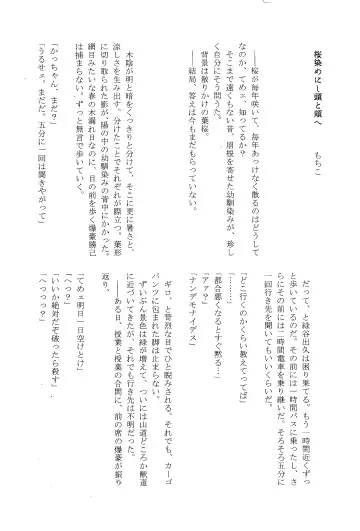 桜染めにし頭と頭へ
もちこ
――桜が毎年咲いて、毎年あっけなく散るのはどうして
なのか、てめェ、知ってるか。
そこまで遠くもない昔、眉根を寄せた幼馴染みが、珍し
く自分にそう問うた。
背景は散りかけの葉桜。
――結局、答えは今もまだもらっていない。
木陰が明と暗をくっきりと分けて、そこに更に暑さと、
涼しさを生み出す。分けたことでそれぞれが際立つ。葉形
に切り取られた影が、陽の中の幼馴染みの背中にかかった。
網目みたいな春の木漏れ日なのに、目の前を歩く爆豪勝己
は絡まらない。ずっと無言で歩いていく。
「かっちゃん、まだ？」
「うるせェ。まだだ。五分に一回は聞きやがって」
だって、と緑谷出久は困り果てる。もう一時間近くずっ
と歩いているのだ。その前には一時間バスに乗ったし、さ
らにその前には二時間電車を乗り継いだ。そろそろ五分に
一回行き先を聞いてもいいくらいだ。
「どこ行くのかくらい教えてってば」
「………」
「都合悪くなるとすぐ黙る…」
「アァ？」
「ナンデモナイデス」
ギロ、と苛烈な目でひと睨みされる。カーゴ
パンツに包まれた脚は止まらない。
ずいぶん景色は緑が増えて、ついには山道どころか獣道
に近づいてきたが、それでも行き先は不明だった。
――ある日、授業と授業の合間に、前の席の爆豪が振り
返り、
「てめェ明日一日空けとけ」
「へっ？」
「いいか絶対だぞ破ったら殺す」
「へっっっ？」